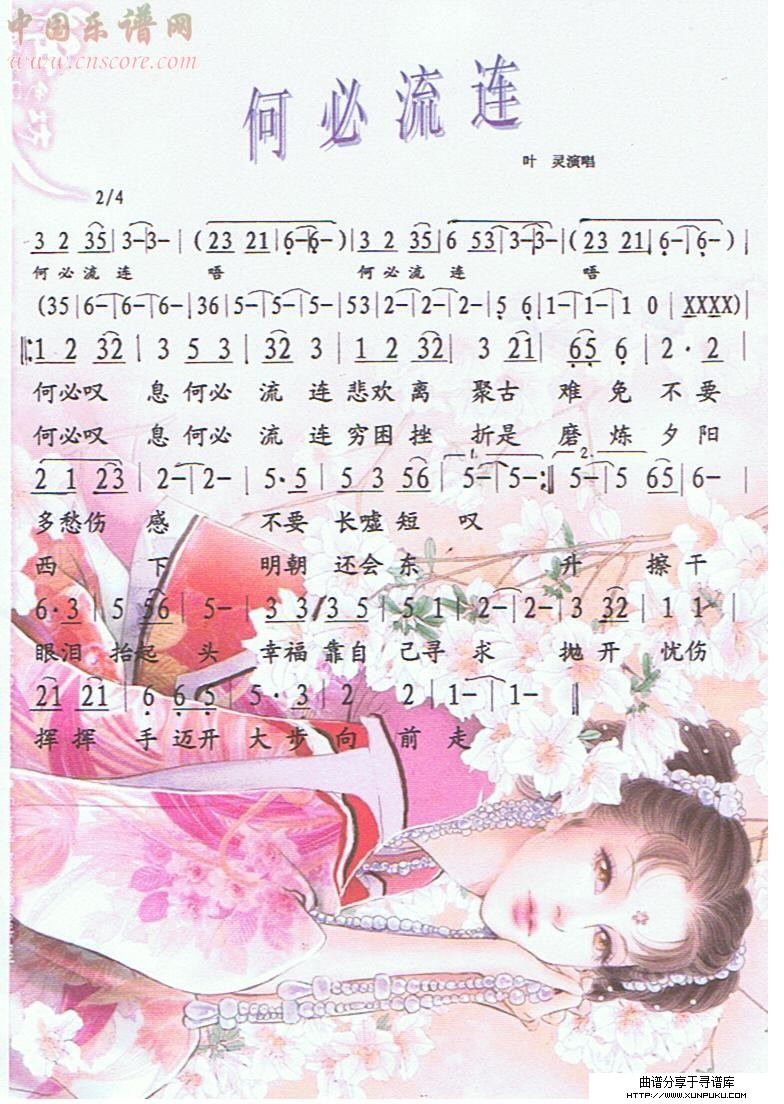 中国乐谱网
www.cnscore.com
何必流连
叶 灵演唱
2/4
3 2 35|3-3-|(23 21|6-6-)|3 2 35|6 53|3-3-|(23 21|6-6-)|
何 必 流 连 唔 何 必 流 连 唔
(35|6-|6-|6-|36|5-|5-|5-|53|2-|2-|2-|5 6|1-|1-|1 0|XXXX)|
‖:1 2 32|3 5 3|32 3|1 2 32|3 21|65 6|2·2|
何必叹 息 何必 流 连 悲欢 离 聚古 难 免 不 要
何必叹 息 何必 流 连 穷困 挫 折是 磨 炼 夕 阳
2 1 23|2-|2-|5·5|5 3 56|1.5-|5-:‖2.5-|5 65|6-|
多愁伤 感 不要 长嘘 短 叹
西 下 明朝 还会 东 升 擦 干
6·3|5 56|5-|3 3/3 5|5 1|2-|2-|3 32|1 1-|
眼泪 抬起 头 幸福 靠自 己寻 求 抛 开 忧伤
21 21|6 6 5|5·3|2 2|1-|1-‖
挥 挥 手 迈开 大 步 向 前 走
曲谱分享于寻谱库
HTTP://WWW.XUNPUKU.COM